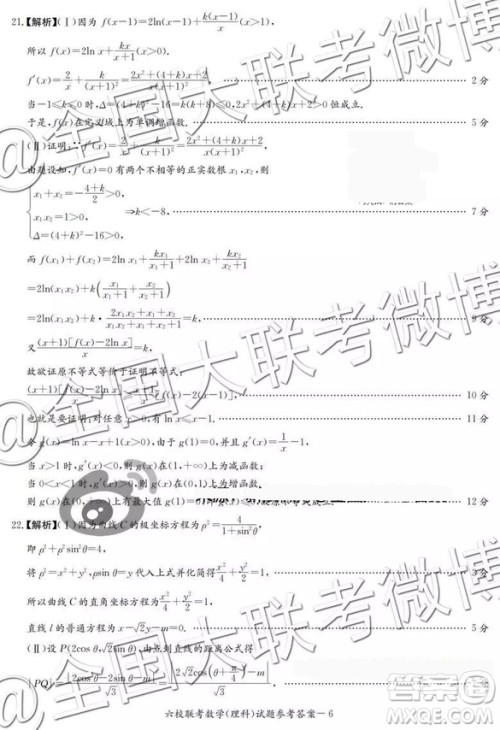 21.【解析】(Ⅰ)因为 f(x−1)=2ln(x−1)+k(x−1)/x(x>1),
所以 f(x)=2ln x+kx/(x+1)(x>0).
f′(x)=2/x+k/(x+1)²=(2x²+(4+k)x+2)/(x(x+1)²) 2分
当−1≤k≤0时,Δ=(4+k)²−16=k²+8k≤0恒成立.
于是,f(x)在定义域上为单调增函数. 5分
(Ⅱ)证明:∵f′(x)=2/x+k/(x+1)²=(2x²+(4+k)x+2)/(x(x+1)²)
由题设知,f′(x)=0有两个不相等的正实数根 x₁,x₂,则
x₁+x₂=−(4+k)/2>0,
x₁x₂=1>0, ⇒k<−8, 7分
Δ=(4+k)²−16>0,
而 f(x₁)+f(x₂)=2ln x₁+kx₁/(x₁+1)+2ln x₂+kx₂/(x₂+1)
=2ln(x₁x₂)+k(x₁/(x₁+1)+x₂/(x₂+1))
=2ln(x₁x₂)+k·(2x₁x₂+x₁+x₂)/(x₁x₂+x₁+x₂+1)=k, 9分
又(x+1)[f(x)−2ln x]/x=k,
故欲证原不等式等价于证明不等式:
(x+1)[f(x)−2ln x]/x≥f(x)−2(x−1), 10分
也就是要证明:对任意 x>0,有 ln x≤x−1. 11分
令 g(x)=ln x−x+1(x>0),由于 g(1)=0,并且 g′(x)=1/x−1,
当 x>1时,g′(x)<0,则 g(x)在(1,+∞)上为减函数;
当 0<x<1时,g′(x)>0,则 g(x)在(0,1)上为增函数.
则 g(x)在(0,+∞)上有最大值 g(1)=0, 12分
22.【解析】(Ⅰ)因为曲线 C 的极坐标方程为 ρ²=4/(1+sin²θ),
即 ρ²+ρ²sin²θ=4,
将 ρ²=x²+y²,ρsin θ=y 代入上式并化简得 x²/4+y²/2=1, 3分
所以曲线 C 的直角坐标方程为 x²/4+y²/2=1,
直线 l 的普通方程为 x−√2y−m=0. 5分
(Ⅱ)设 P(2cos θ,√2sin θ),由点到直线的距离公式得
|PQ|=|2cos θ−2sin θ−m|/√3=|2√2cos(θ+π/4)−m|/√3
六校联考数学(理科)试题参考答案−6
@全国大联考微博
@全国大联考微博